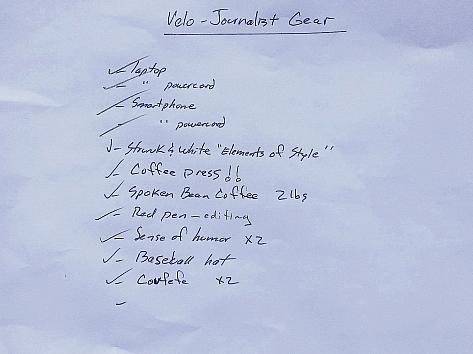 Velo-Journalist Gear
✓- Laptop
✓- " powercord
✓- Smartphone
✓- " powercord
✓- Strunk & White "Elements of Style"
✓- Coffee press!!
✓- Spoken Bean Coffee 2 lbs
✓- Red pen - editing
✓- Sense of humor x2
✓- Baseball hat
✓- Covfefe x2
-